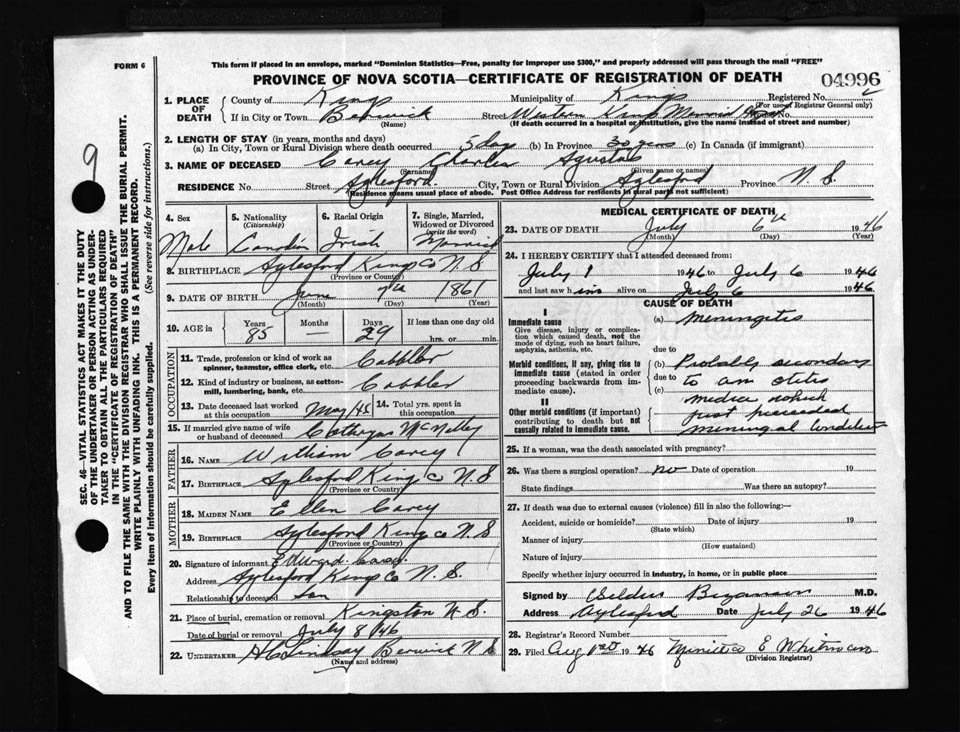 FORM 6
This form if placed in an envelope, marked "Dominion Statistics—Free, penalty for improper use $300," and properly addressed will pass through the mail "FREE"
PROVINCE OF NOVA SCOTIA—CERTIFICATE OF REGISTRATION OF DEATH
04996
9
SEC. 46—VITAL STATISTICS ACT MAKES IT THE DUTY
OF THE UNDERTAKER OR PERSON ACTING AS UNDER-
TAKER TO OBTAIN ALL THE PARTICULARS REQUIRED
IN THE "CERTIFICATE OF REGISTRATION OF DEATH"
AND TO FILE THE SAME WITH THE DIVISION REGISTRAR WHO SHALL ISSUE THE BURIAL PERMIT.
WRITE PLAINLY WITH UNFADING INK. THIS IS A PERMANENT RECORD.
Every item of information should be carefully supplied. (See reverse side for instructions.)
1. PLACE OF DEATH
County of Kings Municipality of Kings Registered No.
(For use of Registrar General only)
If in City or Town Berwick Street Western Kings Memorial
(Name) (If death occurred in a hospital or institution, give the name instead of street and number)
2. LENGTH OF STAY (in years, months and days)
(a) In City, Town or Rural Division where death occurred 5 days (b) In Province (c) In Canada (if immigrant)
3. NAME OF DECEASED Carey Charles
(Surname) (Given name or names)
RESIDENCE No. Street Aylesford City, Town or Rural Division Aylesford Province N.S.
(Residence means usual place of abode. Post Office Address for residents in rural parts not sufficient)
4. Sex
Male
5. Nationality
(Citizenship)
6. Racial Origin
Irish
7. Single, Married,
Widowed or Divorced
(write the word)
Married
8. BIRTHPLACE Aylesford Kings Co N.S
(Province or Country)
9. DATE OF BIRTH June 7th 1861
(Month) (Day) (Year)
10. AGE in
Years
85
Months
—
Days
29
If less than one day old
hrs. or min.
OCCUPATION
11. Trade, profession or kind of work as
spinner, teamster, office clerk, etc. Cobbler
12. Kind of industry or business, as cotton-
mill, lumbering, bank, etc. Cobbler
13. Date deceased last worked
at this occupation May/45
14. Total yrs. spent in
this occupation
15. If married give name of wife
or husband of deceased
FATHER
16. NAME William Carey
17. BIRTHPLACE Aylesford Kings Co N.S
(Province or Country)
MOTHER
18. MAIDEN NAME Ellen Carey
19. BIRTHPLACE Aylesford Kings Co N.S
(Province or Country)
20. Signature of informant Edward Carey
Address Aylesford Kings Co N.S.
Relationship to deceased son
21. Place of burial, cremation or removal Kingston N.S.
Date of burial or removal July 8/46
22. UNDERTAKER Lindsay Berwick N.S
(Name and address)
MEDICAL CERTIFICATE OF DEATH
23. DATE OF DEATH July 6th 1946
(Month) (Day) (Year)
24. I HEREBY CERTIFY that I attended deceased from:
July 1 1946 to July 6 1946
and last saw him alive on July 6 1946
CAUSE OF DEATH
I
Immediate cause (a) Meningitis
Give disease, injury or complica-
tion which caused death, not the
mode of dying, such as heart failure,
asphyxia, asthenia, etc.
due to
Morbid conditions, if any, giving rise to
immediate cause (stated in order
proceeding backwards from im-
mediate cause).
(b) Probably secondary
due to to an otitis
(c) media which
II
Other morbid conditions (if important)
contributing to death but not
causally related to immediate cause.
just preceeded
meningeal condition
25. If a woman, was the death associated with pregnancy?
26. Was there a surgical operation? no Date of operation 19
State findings Was there an autopsy?
27. If death was due to external causes (violence) fill in also the following:—
Accident, suicide or homicide? Date of injury 19
(State which)
Manner of injury
(How sustained)
Nature of injury
Specify whether injury occurred in industry, in home, or in public place
Signed by M.D.
Address Aylesford Date July 26 1946
28. Registrar's Record Number
29. Filed Aug 1946 E Whitman
(Division Registrar)